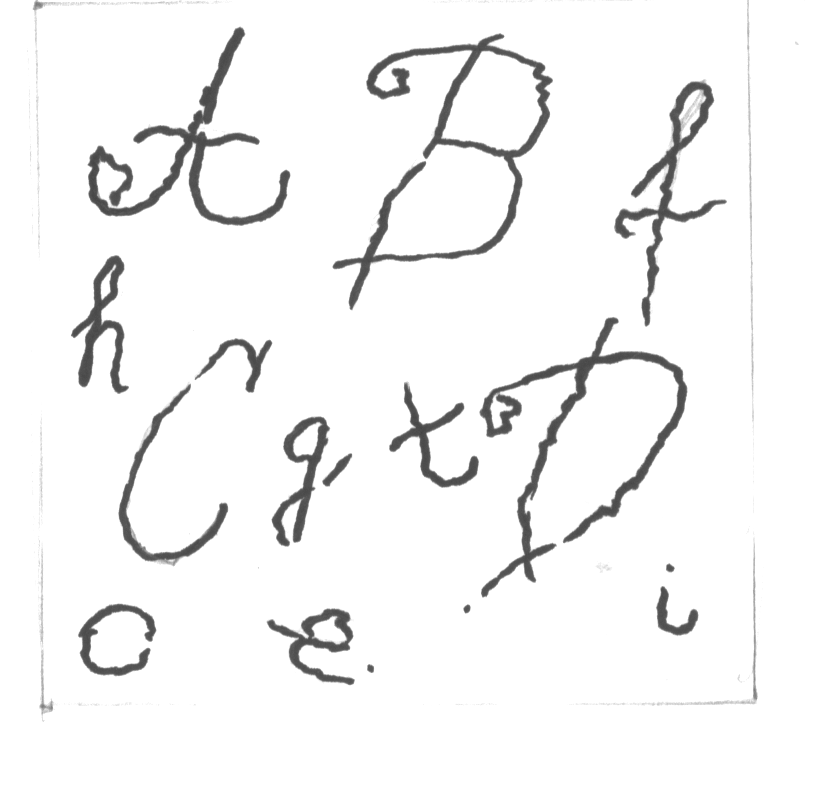 A B f
h
C g t D
o e i